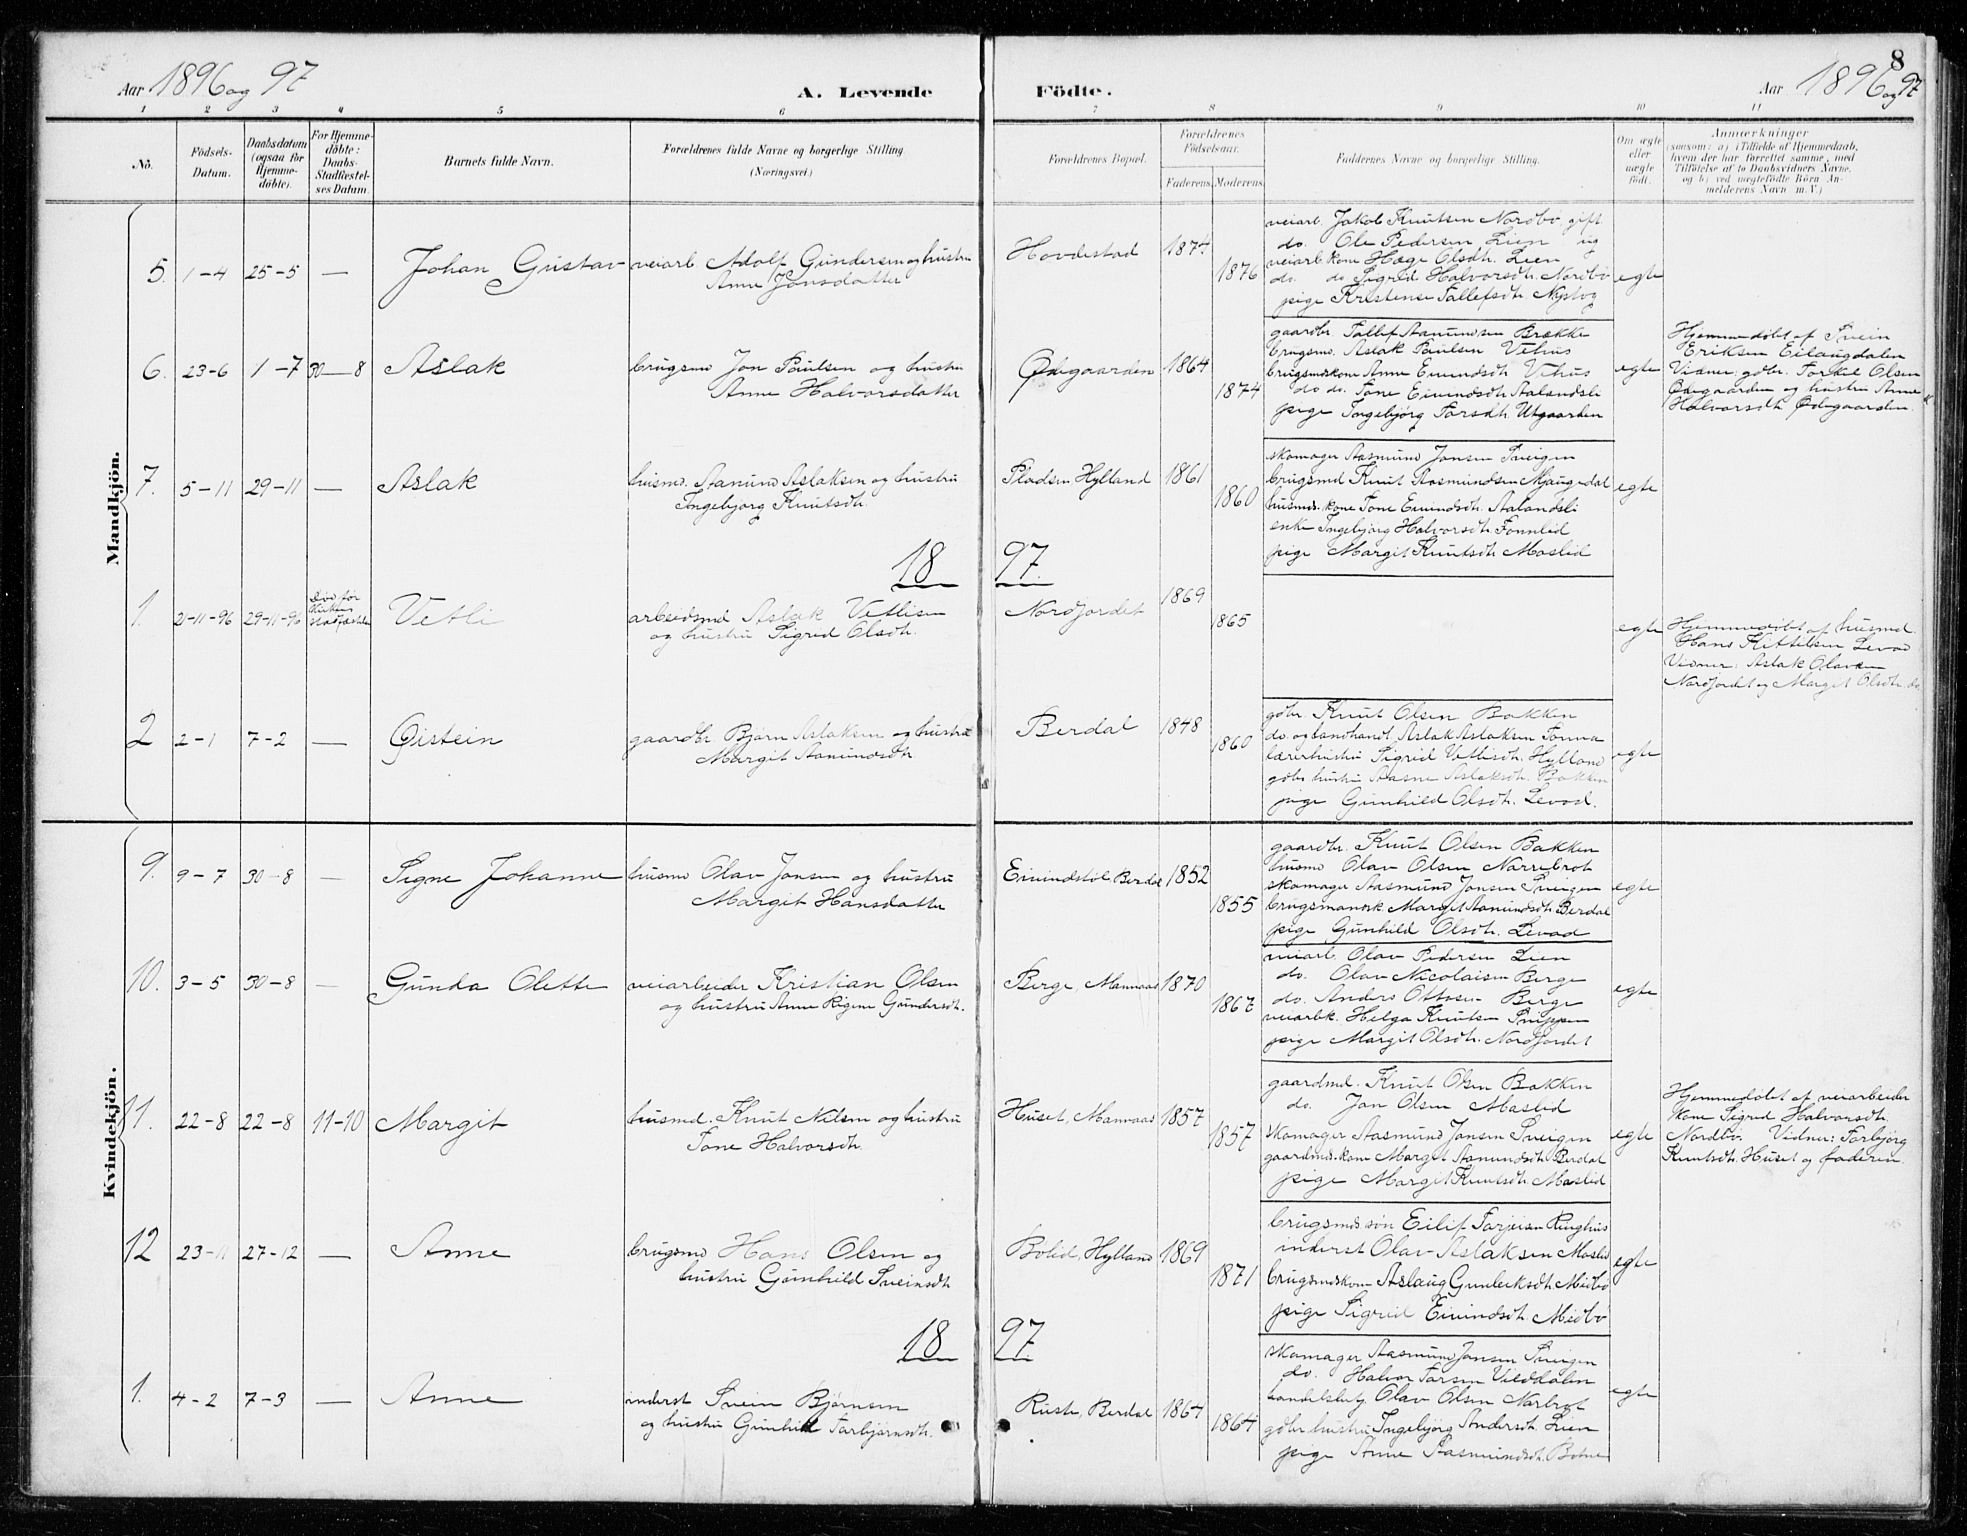 8
Aar 1896 og 97
A. Levende
Födte.
Aar 1896 og 97
1 2 3 4 5 6 7 8 9 10 11
No.
Födsels-
Datum.
Daabsdatum
(ogsaa for
Hjemme-
döbte).
For Hjemme-
döbte:
Daabs-
Stadfæstel-
ses Datum.
Barnets fulde Navn.
Forældrenes fulde Navne og borgerlige Stilling.
(Næringsvei.)
Forældrenes Bopæl.
Forældrenes
Födselsaar.
Faderens. Moderens.
Faddernes Navne og borgerlige Stilling.
Om ægte
eller
uægte
födt.
Anmærkninger
(saasom: a) i Tilfælde af Hjemmedaab,
hvem der har forrettet samme, med
Tilföielse af to Daabsvidners Navne,
og b) ved uægtefödte Börn An-
melderens Navn m. V.)
Mandkjön.
5. 1-4 25-5 — Johan Gustav
veiarb. Adolf Gundersen og hustru
Anne Jonsdatter
Hovdestad 1874
1876
veiarb. Jakob Knutsen Nordbø gift
do. Ole Pedersen Lien ug
veiarb.kone Hæge Olsdtr. Lien
do. do Sigrid Halvorsdtr. Nordbø
pige Kristense Tallefsdtr. Nystog
egte
6. 23-6 1-7 30-8 Aslak
brugsmd Jon Paulsen og hustru
Anne Halvorsdatter
Ødegaarden 1864
1874
gaardbr. Tallef Aanundsen Brække
brugsmd. Aslak Paulsen Vehus
brugsmdskone Anne Eivindsdtr. Vehus
do do. Tone Eivindsdtr. Aalandsli
pige Ingebjørg Tarsdtr. Utgaarden
egte
Hjemmedøbt af Svein
Eriksen Eilaugdalen
Vidner: gdbr. Torkil Olsen
Ødegaarden og hustru Anne
Halvorsdtr. Ødegaarden.
7. 5-11 29-11 — Aslak
husmd. Aanund Aslaksen og hustru
Ingebjørg Knutsdtr.
Pladsen Hylland 1861
1860
skomager Aasmund Jonsen Sveigen
brugsmd Knut Aasmundsen Mjaugedal
husmds.kone Tone Eivindsdtr. Aalandsli
enke Ingebjørg Halvorsdtr. Fonnlid
pige Margit Knutsdtr. Moslid
egte
18 97.
1. 21-11-96 29-11-96 Død før
Kirkens
stadfæstelse
Vetli
arbeidsmd Aslak Vetlisen
og hustru Sigrid Olsdtr.
Nordjordet 1869
1865
egte
Hjemmedøbt af husmd.
Hans Kittilsen Levad
Vidner: Aslak Olavsen
Nordjordet og Margit Olsdtr. do.
2 2-1 7-2 — Øistein
gaardbr. Bjørn Aslaksen og hustru
Margit Aanundsdtr
Berdal 1848
1860
gdbr. Knut Olsen Bakken
do og landhandl. Aslak Aslaksen
lærerhustru Sigrid Vetlisdtr. Hylland
gdbr hustru Aasne Aslaksdtr. Bakken
pige Gunhild Olsdtr. Levad.
egte
Kvindekjön.
9. 9-7 30-8 — Signe Johanne
husmd Olav Jonsen og hustru
Margit Hansdatter
Eivindstøl Berdal 1852
1855
gaardbr. Knut Olsen Bakken
husmd Olav Olsen Narrebrot
skomager Aasmund Jonsen Sveigen
brugsmansk. Margit Aanundsdtr. Berdal
pige Gunhild Olsdtr. Levad
egte
10. 3-5 30-8 — Gunda Olette
veiarbeider Kristian Olsen
og hustru Anne Regine Gundersdtr.
Berge, Mannaas 1870
1867
veiarb. Olav Pedersen Lien
do. Olav Nicolaisen Berge
do. Anders Ottosen Berge
veiarbk. Helga Knutsen
pige Margit Olsdtr. Nordjordet
egte
11. 22-8 22-8 11-10 Margit
husmd. Knut Nilsen og hustru
Tone Halvorsdtr.
Huset, Mannaas 1857
1857
gaardmd. Knut Olsen Bakken
do. Jon Olsen Moslid
skomager Aasmund Jonsen Sveigen
gaardmds.kone Margit Aanundsdtr. Berdal
pige Margit Knutsdtr. Moslid
egte
Hjemmedøbt af veiarbeider
kone Sigrid Halvorsdtr.
Nordbø. Vidner: Torbjørg
Knutsdtr. Huset og faderen.
12 23-11 27-12 — Anne
brugsmd Hans Olsen og
hustru Gunhild Sveinsdtr
Bølid, Hylland 1869
1871
brugsmds søn Eilif Tarjeisen Ringhus
inderst Olav Aslaksen Moslid
brugsmdskone Aslaug Gunleiksdtr. Midbø
pige Sigrid Eivindsdtr. Midbø
egte
18 97.
1. 4-2 7-3 — Anne
inderst Svein Bjørnsen
og hustru Gunhild Torbjørnsdtr.
Ruste, Berdal 1864
1864
skomager Aasmund Jonsen Sveigen
do. Halvor Tarsen Vieddalen
handelsbetj. Olav Olsen Narbrot
gdbr hustru Ingebjørg Andersdtr. Lien
pige Anne Aasmundsdtr. Botne
egte